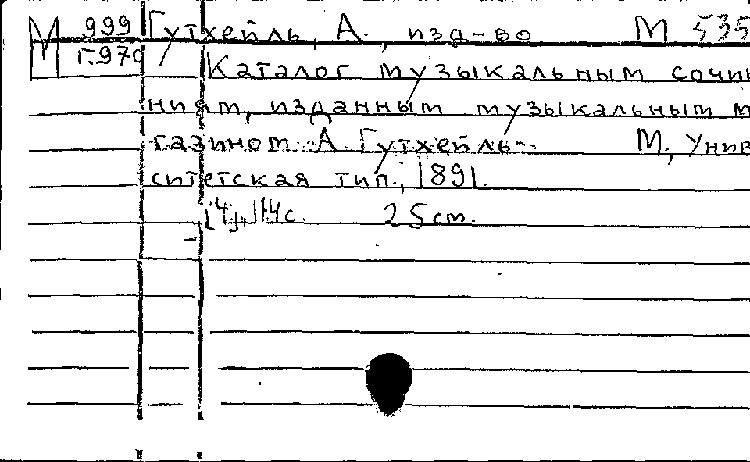 М 999 Гутхейль, А., изд-во М 535
Г.970 Каталог музыкальным сочи
ниям, изданным музыкальным м
газином А. Гутхейль. М., Унив
ситетская тип., 1891.
25 cm.